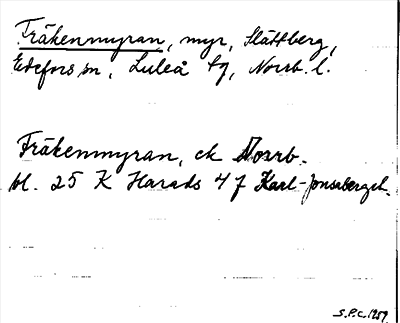 Fräkenmyran, myr, Slättberg,
Edefors sn, Luleå tg, Norrb. l.
Fräkenmyran, ek Norrb.
bl. 25 K Harads 4 f Karl-Jonsberget.
S.P.C. 1959